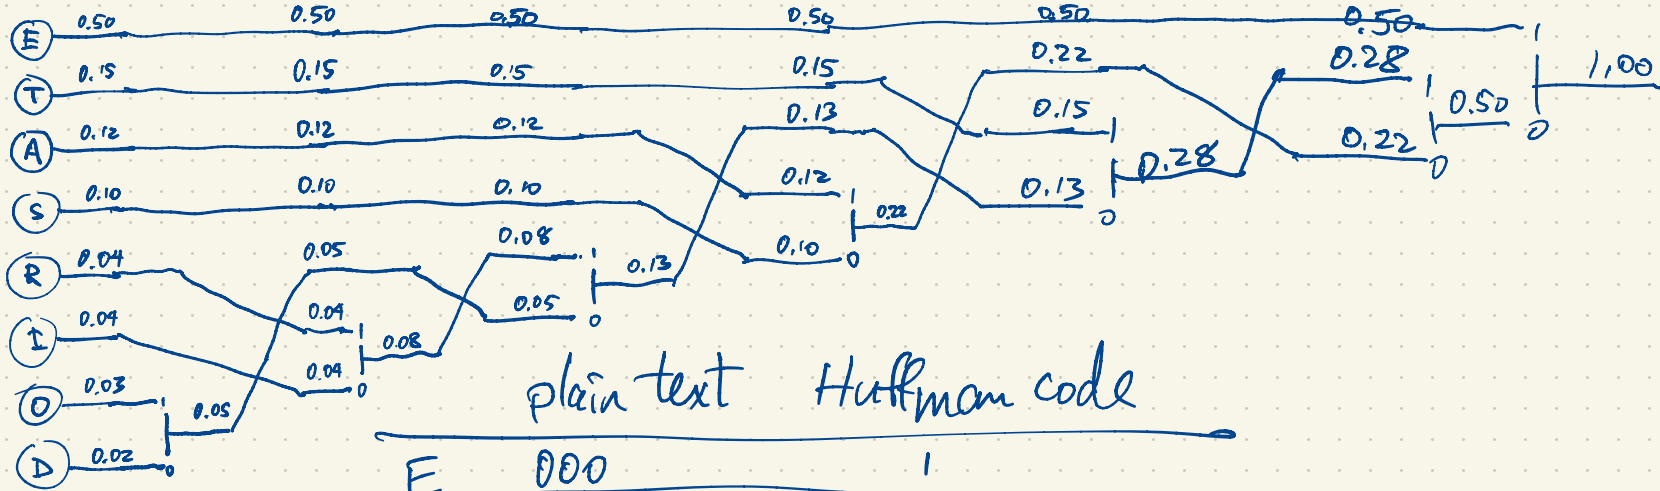 E 0.50 0.50 0.50 0.50 0.50 0.50 1
T 0.15 0.15 0.15 0.15 0.22 0.28 1 1.00
A 0.12 0.12 0.12 0.13 0.15 1 0.28 0.22 0 0.50 0
S 0.10 0.10 0.10 0.12 1 0.22 0.13 0
R 0.04 0.05 0.08 1 0.13 0.10 0
I 0.04 0.04 1 0.08 0.05 0
O 0.03 1 0.05 0.04 0
D 0.02 0
plain text Huffman code
E 000 1